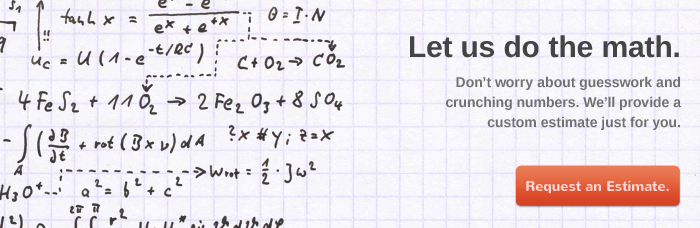 tanh x = e^x - e / e^x + e^+x
θ = I · N
u_c = U (1 - e^-t/RC)
C + O₂ → CO₂
4 Fe S₂ + 11 O₂ → 2 Fe₂ O₃ + 8 SO₄
- ∫_A (∂B/∂t + rot (B x v) dA
?x # y; z = x
→ W_rot = 1/2 · J ω²
H₃O⁺
a² = b² + c²
r²
Let us do the math.
Don’t worry about guesswork and
crunching numbers. We’ll provide a
custom estimate just for you.
Request an Estimate.